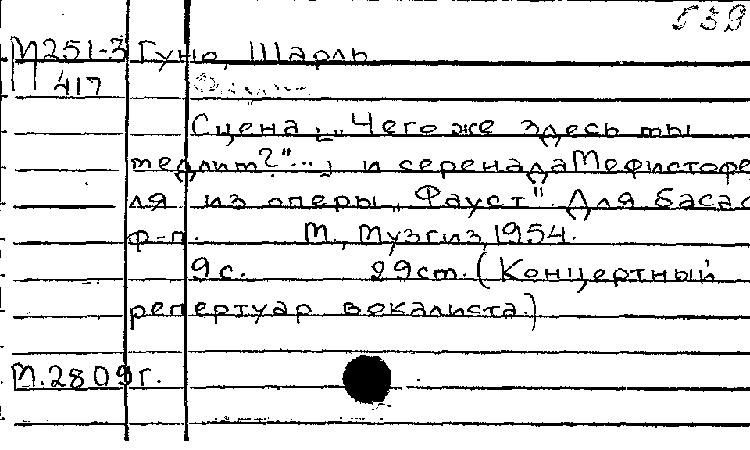 539
М251-3 Гуно, Шарль
417
Сцена: „Чего же здесь ты
медлит?"...; и серенада Мефистофе
ля из оперы „Фауст". Для баса с
ф-п. М., Музгиз, 1954.
9с. 29ст. (Концертный
репертуар вокалиста.)
М.2809г.